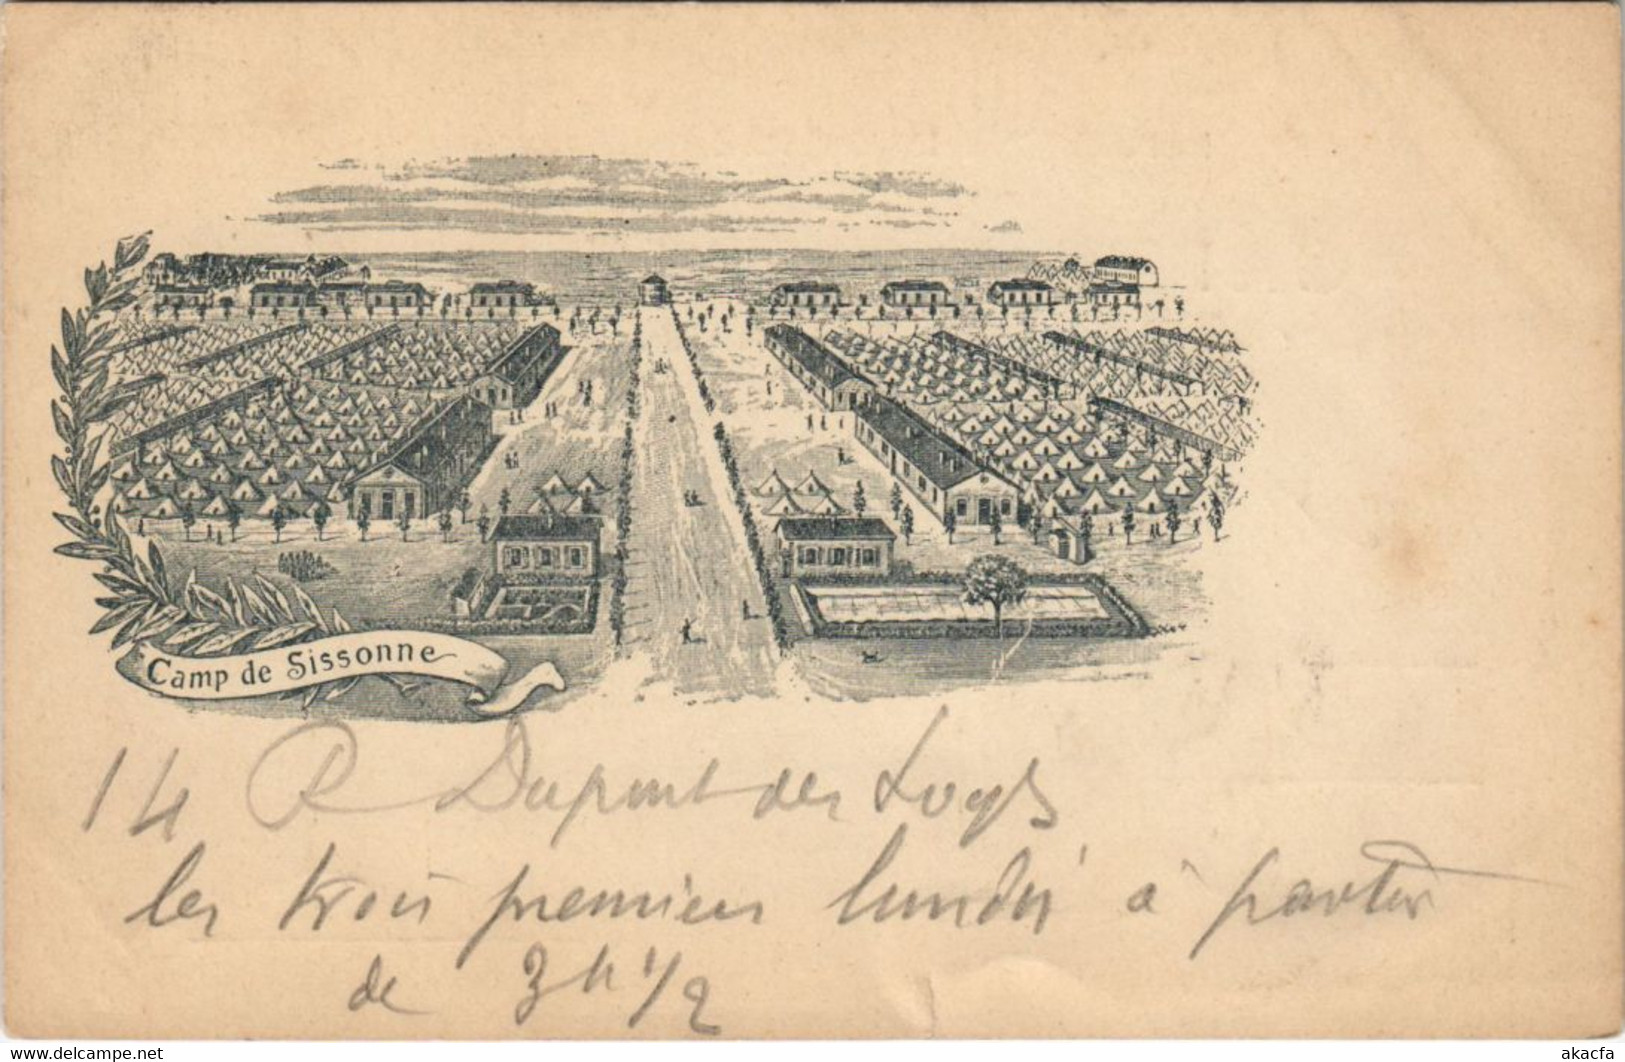 Camp de Sissonne
14 R Dupont des Loges
les trois premiers lundis à partir
de 3h 1/2
akacfa-delcampe.net
akacfa